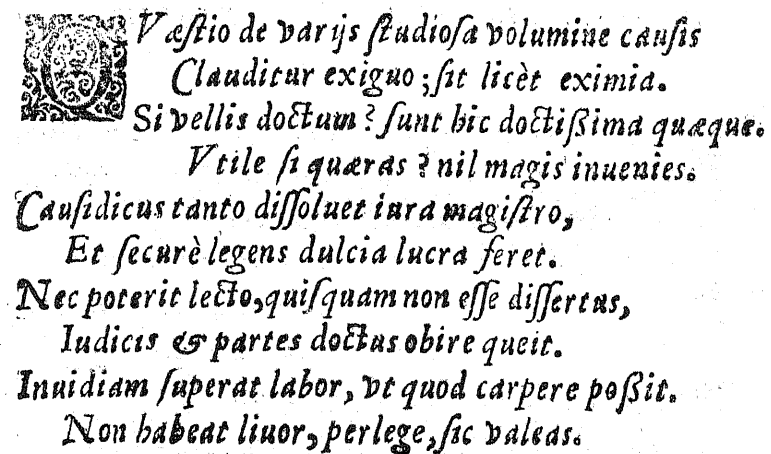 QVæſtio de varijs ſtudioſa volumine cauſis
Clauditur exiguo; ſit licèt eximia.
Si vellis doctum? ſunt hic doctißima quæque.
Vtile ſi quæras? nil magis inuenies.
Cauſidicus tanto diſſoluet iura magiſtro,
Et ſecurè legens dulcia lucra feret.
Nec poterit lecto, quiſquam non eſſe diſſertus,
Iudicis & partes doctus obire queit.
Inuidiam ſuperat labor, vt quod carpere poßit.
Non habeat liuor, perlege, ſic valeas.